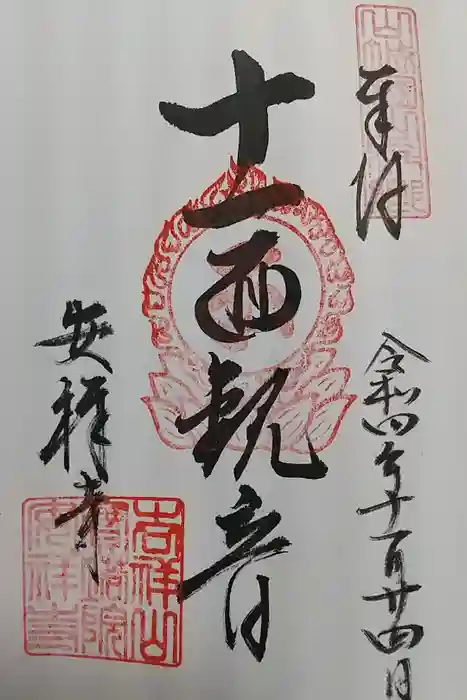 奉拝
令和四年十一月廿四日
十一面観音
安祥寺
吉祥山
寳塔院
安祥寺